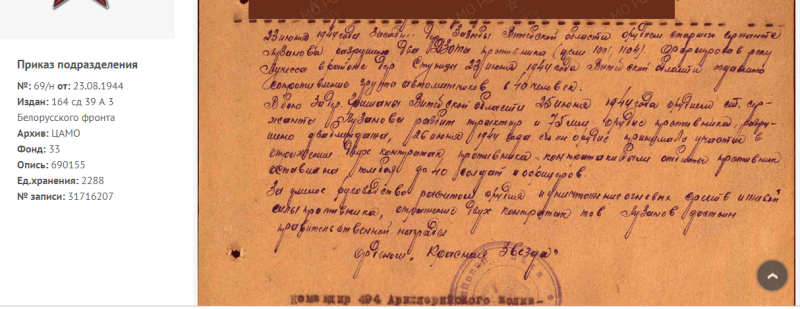 Приказ подразделения
№: 69/н от: 23.08.1944
Издан: 164 сд 39 А 3
Белорусского фронта
Архив: ЦАМО
Фонд: 33
Опись: 690155
Ед.хранения: 2288
№ записи: 31716207
23 июня 1944 года дер. Витебской области орудием старшего сержанта
Лузанова разрушено два ДЗОТа противника (цели 101, 1104). Форсировав реку
Лучесса в районе дер 23 июня 1944 года Витебской области подавил
сопротивление группы автоматчиков в 10 человек.
В бою за дер. Витебской области 25 июня 1944 года орудием ст. сер-
жанта Лузанова разбит трактор и 75 мм орудие противника, разру-
шено два 26 июня 1944 года орудие принимало участие в
отражении двух контратак противника. противник
оставил на поле до 40 солдат и офицеров.
За умелое руководство расчетом орудия и уничтожение огневых средств и живой
силы противника, отражение двух контратак тов Лузанов достоин
правительственной награды
орденом „Красная Звезда"
Командир 494 Артиллерийского полка-